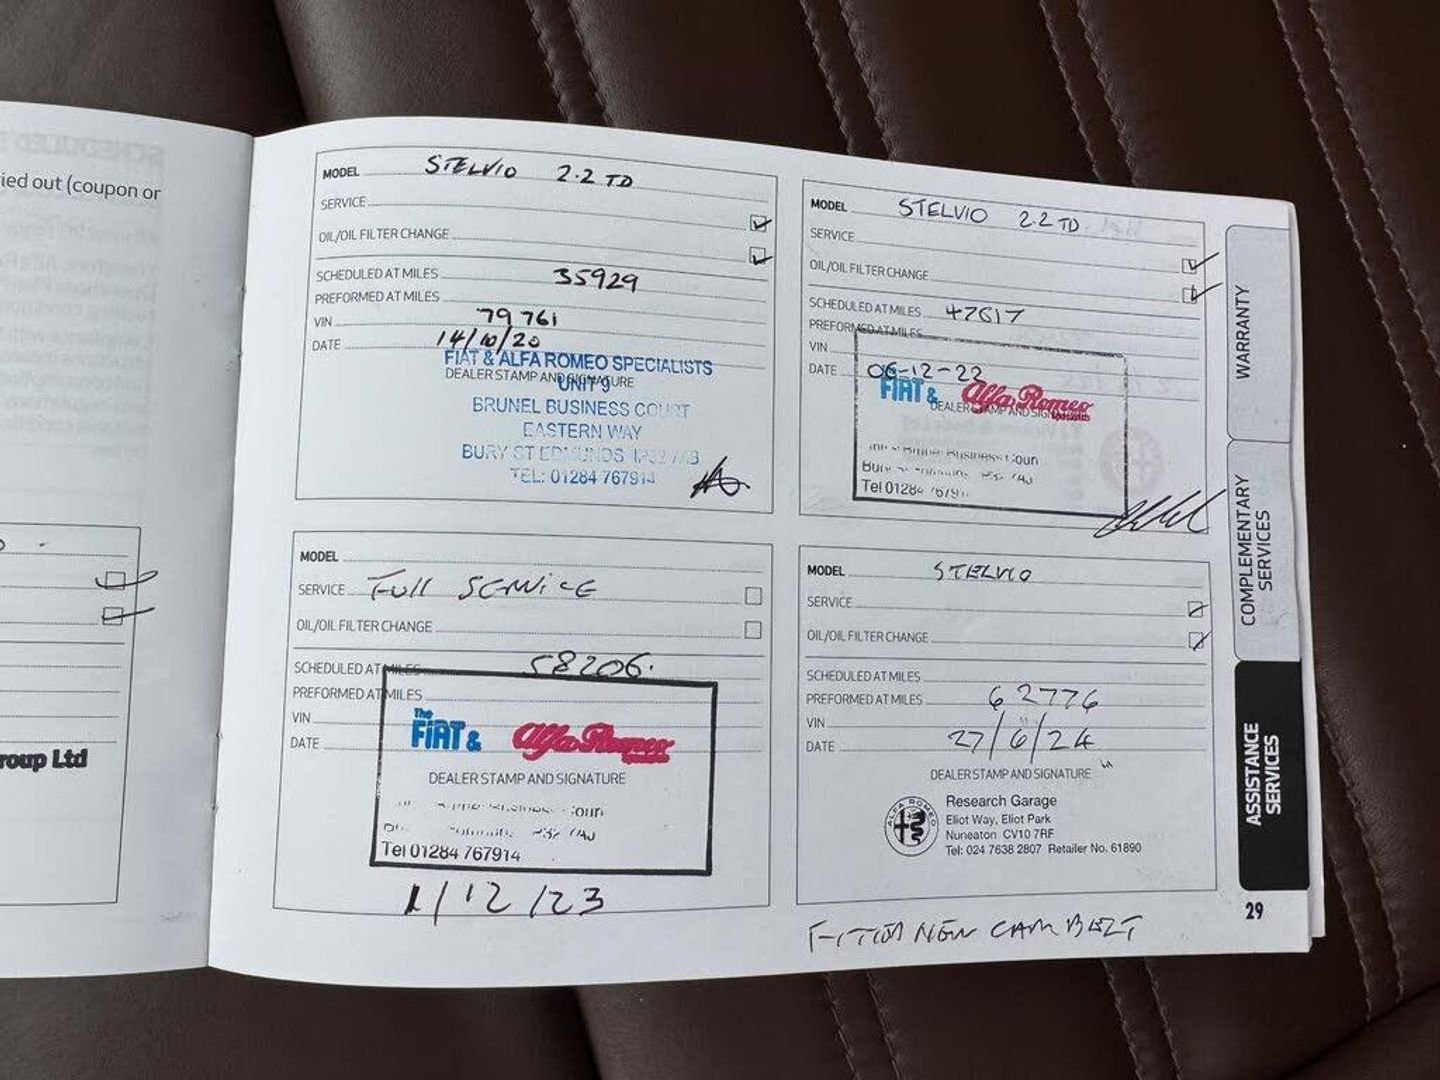 ied out (coupon or
roup Ltd
MODEL STELVIO 2.2 TD
SERVICE
OIL/OIL FILTER CHANGE
SCHEDULED AT MILES 35929
PREFORMED AT MILES
VIN 79761
DATE 14/10/20
FIAT & ALFA ROMEO SPECIALISTS
DEALER STAMP AND SIGNATURE
UNIT 9
BRUNEL BUSINESS COURT
EASTERN WAY
BURY ST EDMUNDS IP32 7AB
TEL: 01284 767914
MODEL STELVIO 2.2 TD
SERVICE
OIL/OIL FILTER CHANGE
SCHEDULED AT MILES 47617
PREFORMED AT MILES
VIN
DATE 06-12-22
FIAT & Alfa Romeo
DEALER STAMP AND SIGN
Business Coun
Tel 01284
MODEL
SERVICE Full SERVICE
OIL/OIL FILTER CHANGE
SCHEDULED AT MILES 58206.
PREFORMED AT MILES
VIN
DATE
The
FIAT & Alfa Romeo
DEALER STAMP AND SIGNATURE
Tel 01284 767914
1/12/23
MODEL STELVIO
SERVICE
OIL/OIL FILTER CHANGE
SCHEDULED AT MILES
PREFORMED AT MILES 62776
VIN
DATE 27/6/24
DEALER STAMP AND SIGNATURE
ALFA ROMEO
Research Garage
Eliot Way, Eliot Park
Nuneaton CV10 7RF
Tel: 024 7638 2807 Retailer No. 61890
FITTED NEW CAM BELT
29
WARRANTY
COMPLEMENTARY
SERVICES
ASSISTANCE
SERVICES